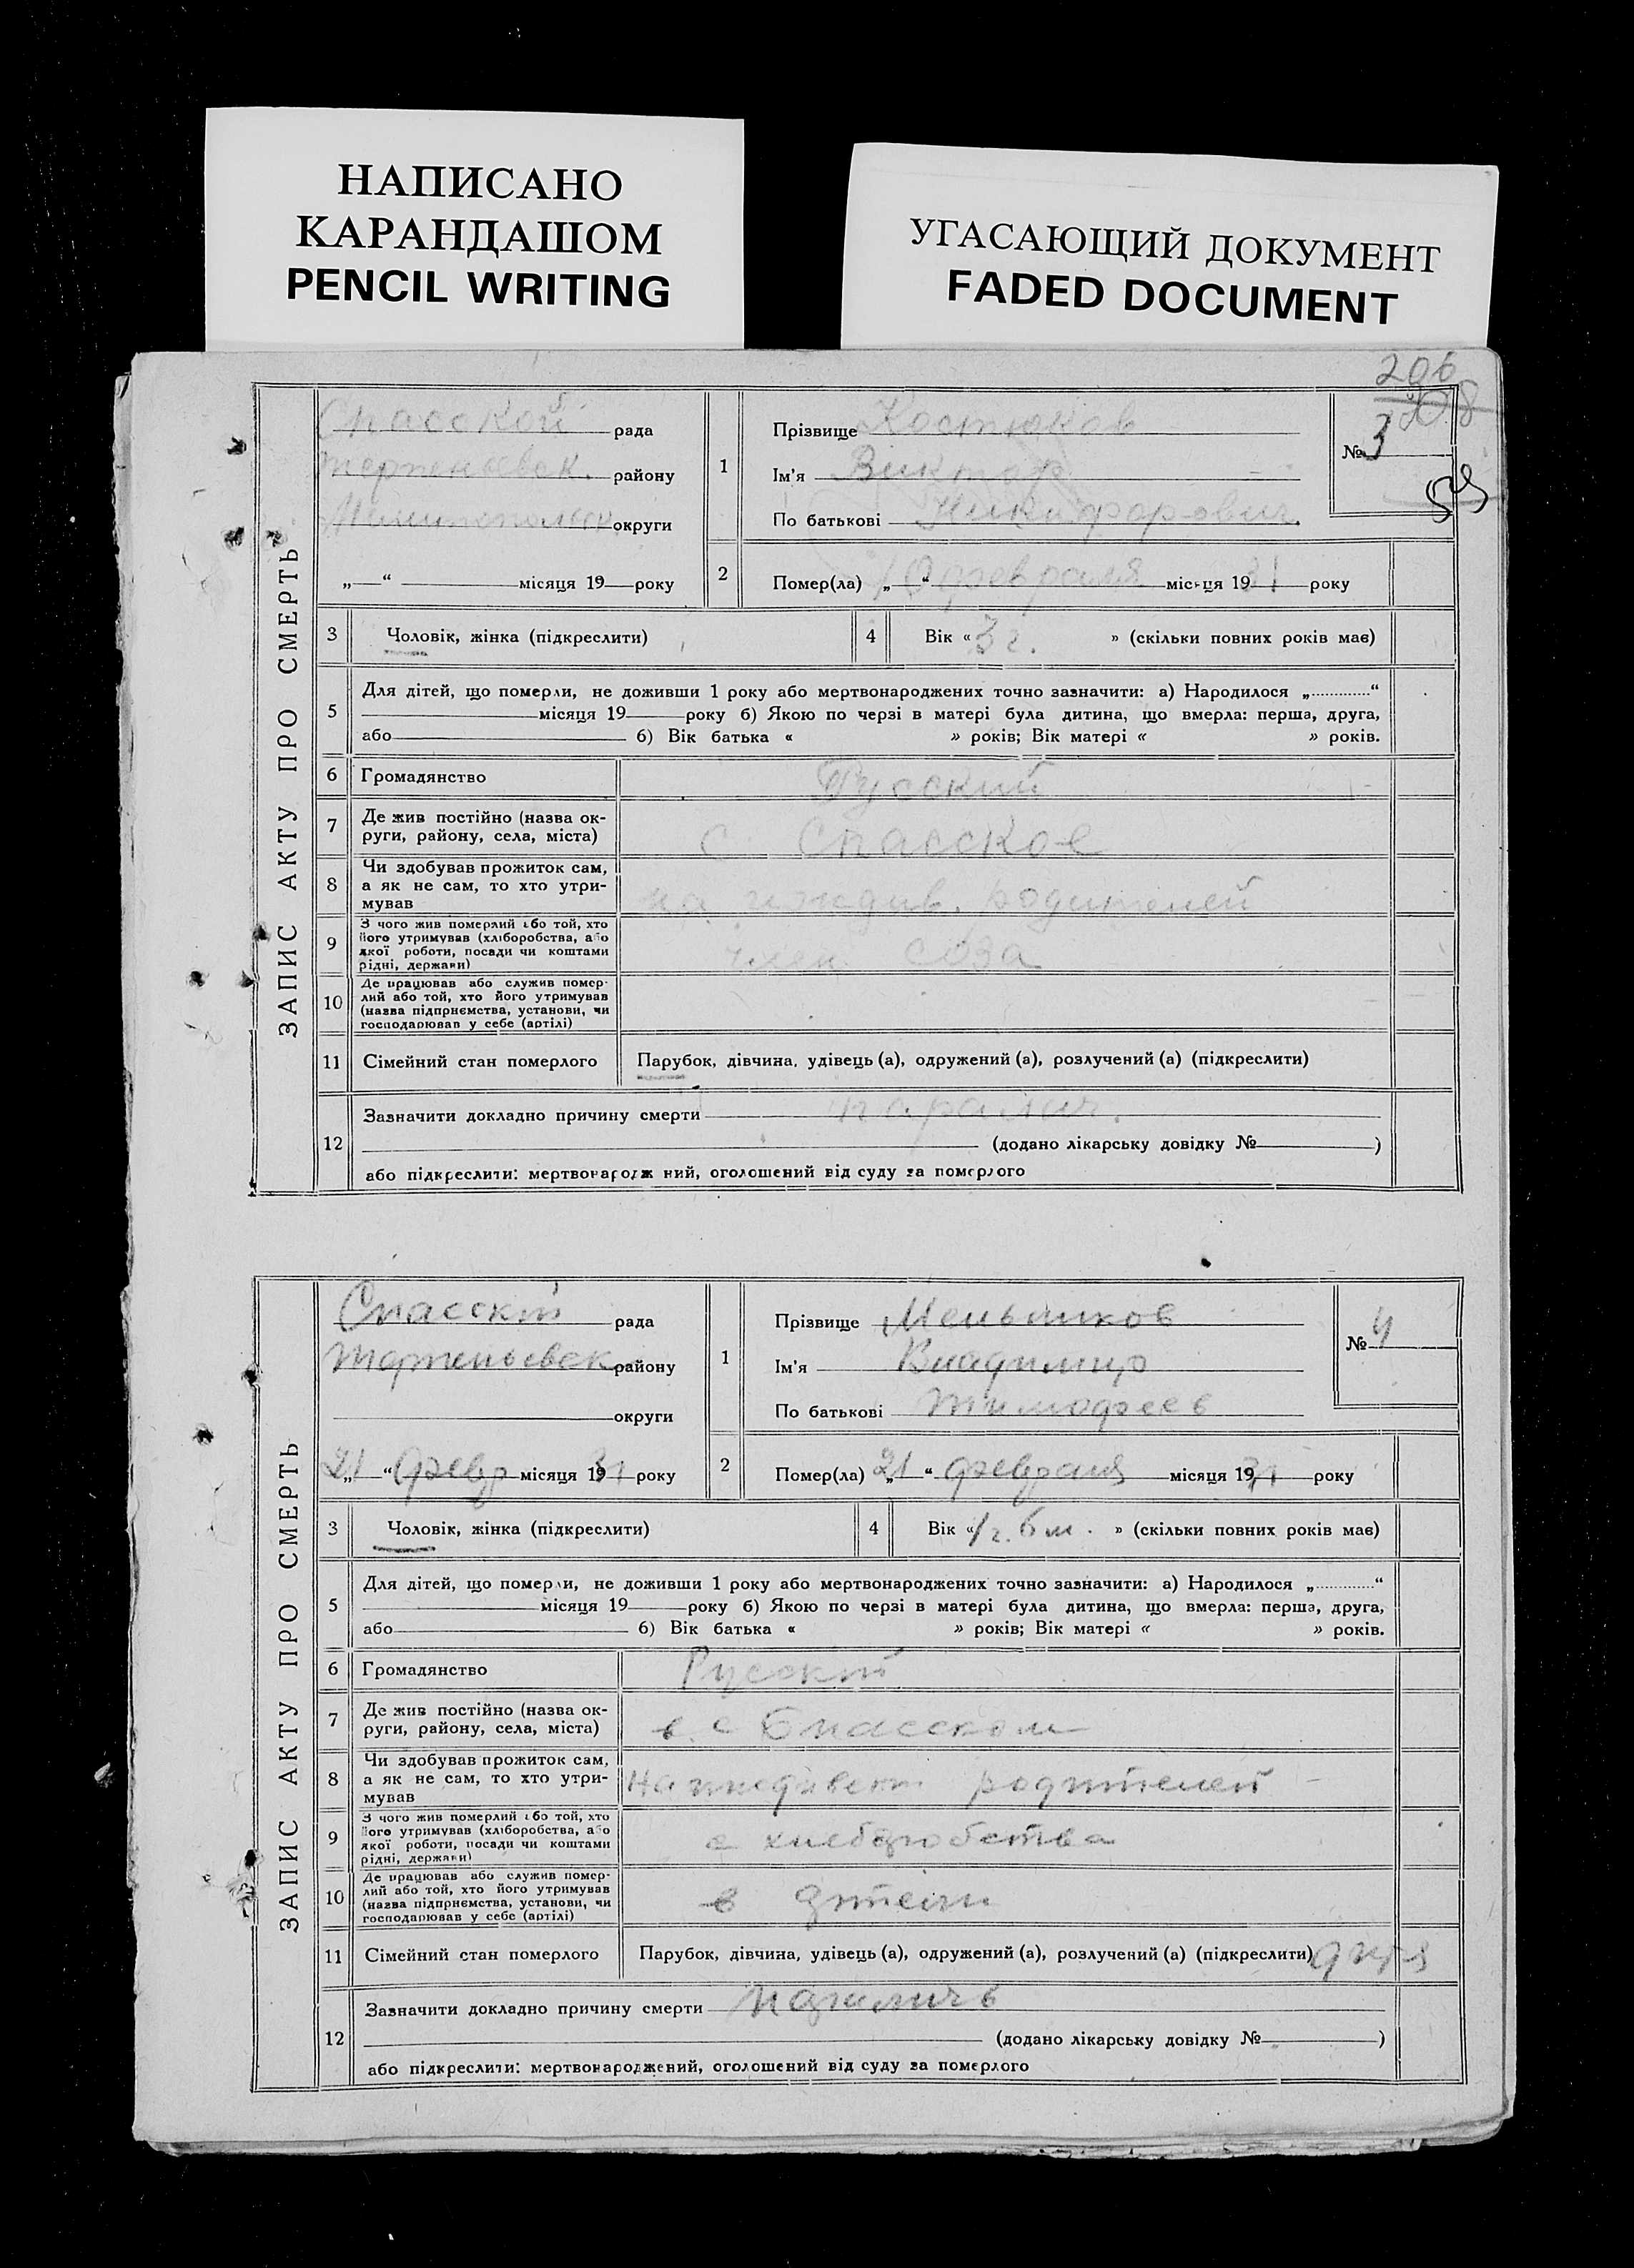 НАПИСАНО
КАРАНДАШОМ
PENCIL WRITING
УГАСАЮЩИЙ ДОКУМЕНТ
FADED DOCUMENT
206
308
59
ЗАПИС АКТУ ПРО СМЕРТЬ
Спасской рада
району
Мелитопольск округи
„ “ місяця 19 року
1
Прізвище Костюков
Ім'я Виктор
По батькові Никифорович.
№ 3
2
Помер(ла) „ 10 “ февраля місяця 1931 року
3 Чоловік, жінка (підкреслити)
4 Вік « 3 г. » (скільки повних років має)
5 Для дітей, що померли, не доживши 1 року або мертвонароджених точно зазначити: а) Народилося „..............“
місяця 19 року б) Якою по черзі в матері була дитина, що вмерла: перша, друга,
або б) Вік батька « » років; Вік матері « » років.
6 Громадянство Русский
7 Де жив постійно (назва округи, району, села, міста) с. Спасское
8 Чи здобував прожиток сам, а як не сам, то хто утримував на иждив. родителей
9 З чого жив померлий або той, хто його утримував (хліборобства, або якої роботи, посади чи коштами рідні, держави) член соза
10 Де працював або служив померлий або той, хто його утримував (назва підприємства, установи, чи господарював у себе (артілі)
11 Сімейний стан померлого Парубок, дівчина, удівець (а), одружений (а), розлучений (а) (підкреслити)
12 Зазначити докладно причину смерти паралич.
(додано лікарську довідку № )
або підкреслити: мертвонароджений, оголошений від суду за померлого
ЗАПИС АКТУ ПРО СМЕРТЬ
Спасскій рада
району
округи
„ 21 “ февр місяця 1931 року
1
Прізвище Мельников
Ім'я Владимир
По батькові Тимофеев
№ 4
2
Помер(ла) „ 21 “ февраля місяця 1931 року
3 Чоловік, жінка (підкреслити)
4 Вік « 1 г. 6 м. » (скільки повних років має)
5 Для дітей, що померли, не доживши 1 року або мертвонароджених точно зазначити: а) Народилося „..............“
місяця 19 року б) Якою по черзі в матері була дитина, що вмерла: перша, друга,
або б) Вік батька « » років; Вік матері « » років.
6 Громадянство Русскій
7 Де жив постійно (назва округи, району, села, міста) в с Спасском
8 Чи здобував прожиток сам, а як не сам, то хто утримував родителей
9 З чого жив померлий або той, хто його утримував (хліборобства, або якої роботи, посади чи коштами рідні, держави) с хлебробства
10 Де працював або служив померлий або той, хто його утримував (назва підприємства, установи, чи господарював у себе (артілі) в
11 Сімейний стан померлого Парубок, дівчина, удівець (а), одружений (а), розлучений (а) (підкреслити) дитя
12 Зазначити докладно причину смерти
(додано лікарську довідку № )
або підкреслити: мертвонароджений, оголошений від суду за померлого